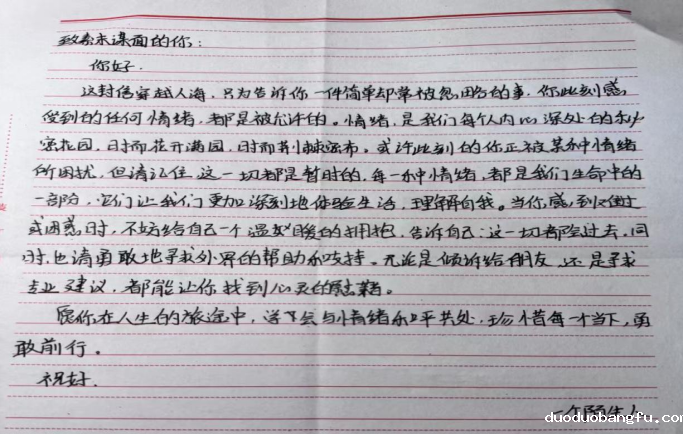 致素未谋面的你：
你好.
这封信穿越人海，只为告诉你一件简单却常被忽略的事，你此刻感
受到的任何情绪，都是被允许的。情绪，是我们每个人内心深处的秘
密花园，时而花开满园，时而荆棘密布。或许此刻的你正被某种情绪
所困扰，但请记住，这一切都是暂时的，每一种情绪，都是我们生命中的
一部分，它们让我们更加深刻地体验生活，理解自我。当你感到疲惫
或困惑时，不妨给自己一个温暖的拥抱，告诉自己：这一切都会过去，同
时，也请勇敢地寻求外界的帮助和支持。无论是倾诉给朋友，还是寻求
专业建议，都能让你找到心灵的慰藉。
愿你在人生的旅途中，学会与情绪和平共处，珍惜每一个当下，勇
敢前行。
祝好.
一个陌生人
duoduobangfu.com